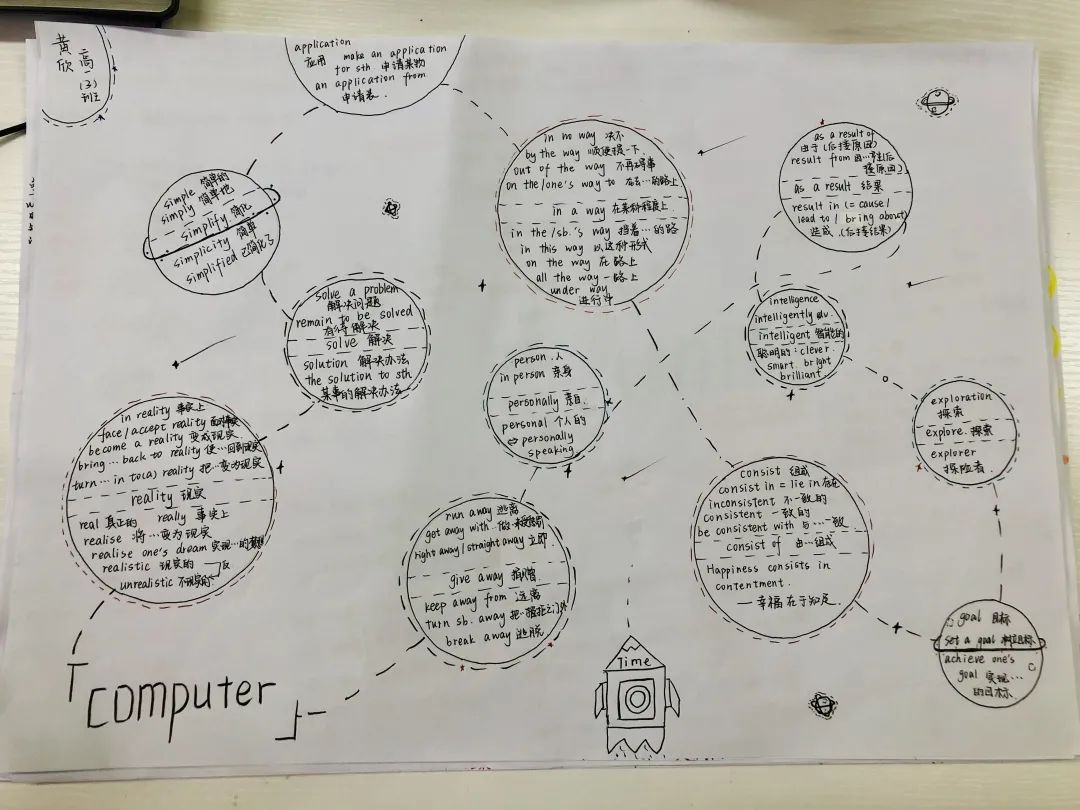 黄欣
高一(3)班
application
应用 make an application
for sth. 申请某物
an application from
申请表.
simple 简单的
simply 简单地
simplify 简化
simplicity 简单
simplified 已简化了
solve a problem
解决问题
remain to be solved
有待解决
solve 解决
solution 解决办法
the solution to sth
某事的解决办法
in reality 事实上
face/accept reality 面对事实
become a reality 变成现实
bring … back to reality 使…回到现实
turn … in to(a) reality 把…变为现实
reality 现实
real 真正的 really 事实上
realise 将…变为现实
realise one's dream 实现…的梦想
realistic 现实的
unrealistic 不现实的
反
「computer」
in no way 决不
by the way 顺便提一下.
out of the way 不再碍事
on the/one's way to 在去…的路上
in a way 在某种程度上
in the/sb.'s way 挡着…的路
in this way 以这种形式
on the way 在路上
all the way 一路上
under way
进行中
person .人
in person 亲身
personally 亲自.
personal 个人的
⇔ personally
speaking
run away 逃离
get away with
right away/straight away 立即.
give away 捐赠
keep away from 远离
turn sb. away 把…拒之门外
break away 逃脱
as a result of
由于(后接原因)
result from 因…产生(后
接原因).
as a result 结果
result in (= cause/
lead to / bring about)
造成.(后接结果)
intelligence
intelligently adv.
intelligent 智能的
聪明的:clever.
smart bright
brilliant
exploration
探索
explore. 探索
explorer
探险者.
consist 组成
consist in = lie in 存在
inconsistent 不一致的
consistent 一致的
be consistent with 与…一致.
consist of 由…组成
Happiness consists in
contentment.
— 幸福在于知足.
goal 目标
set a goal 制定目标
achieve one's
goal 实现…
的目标
Time